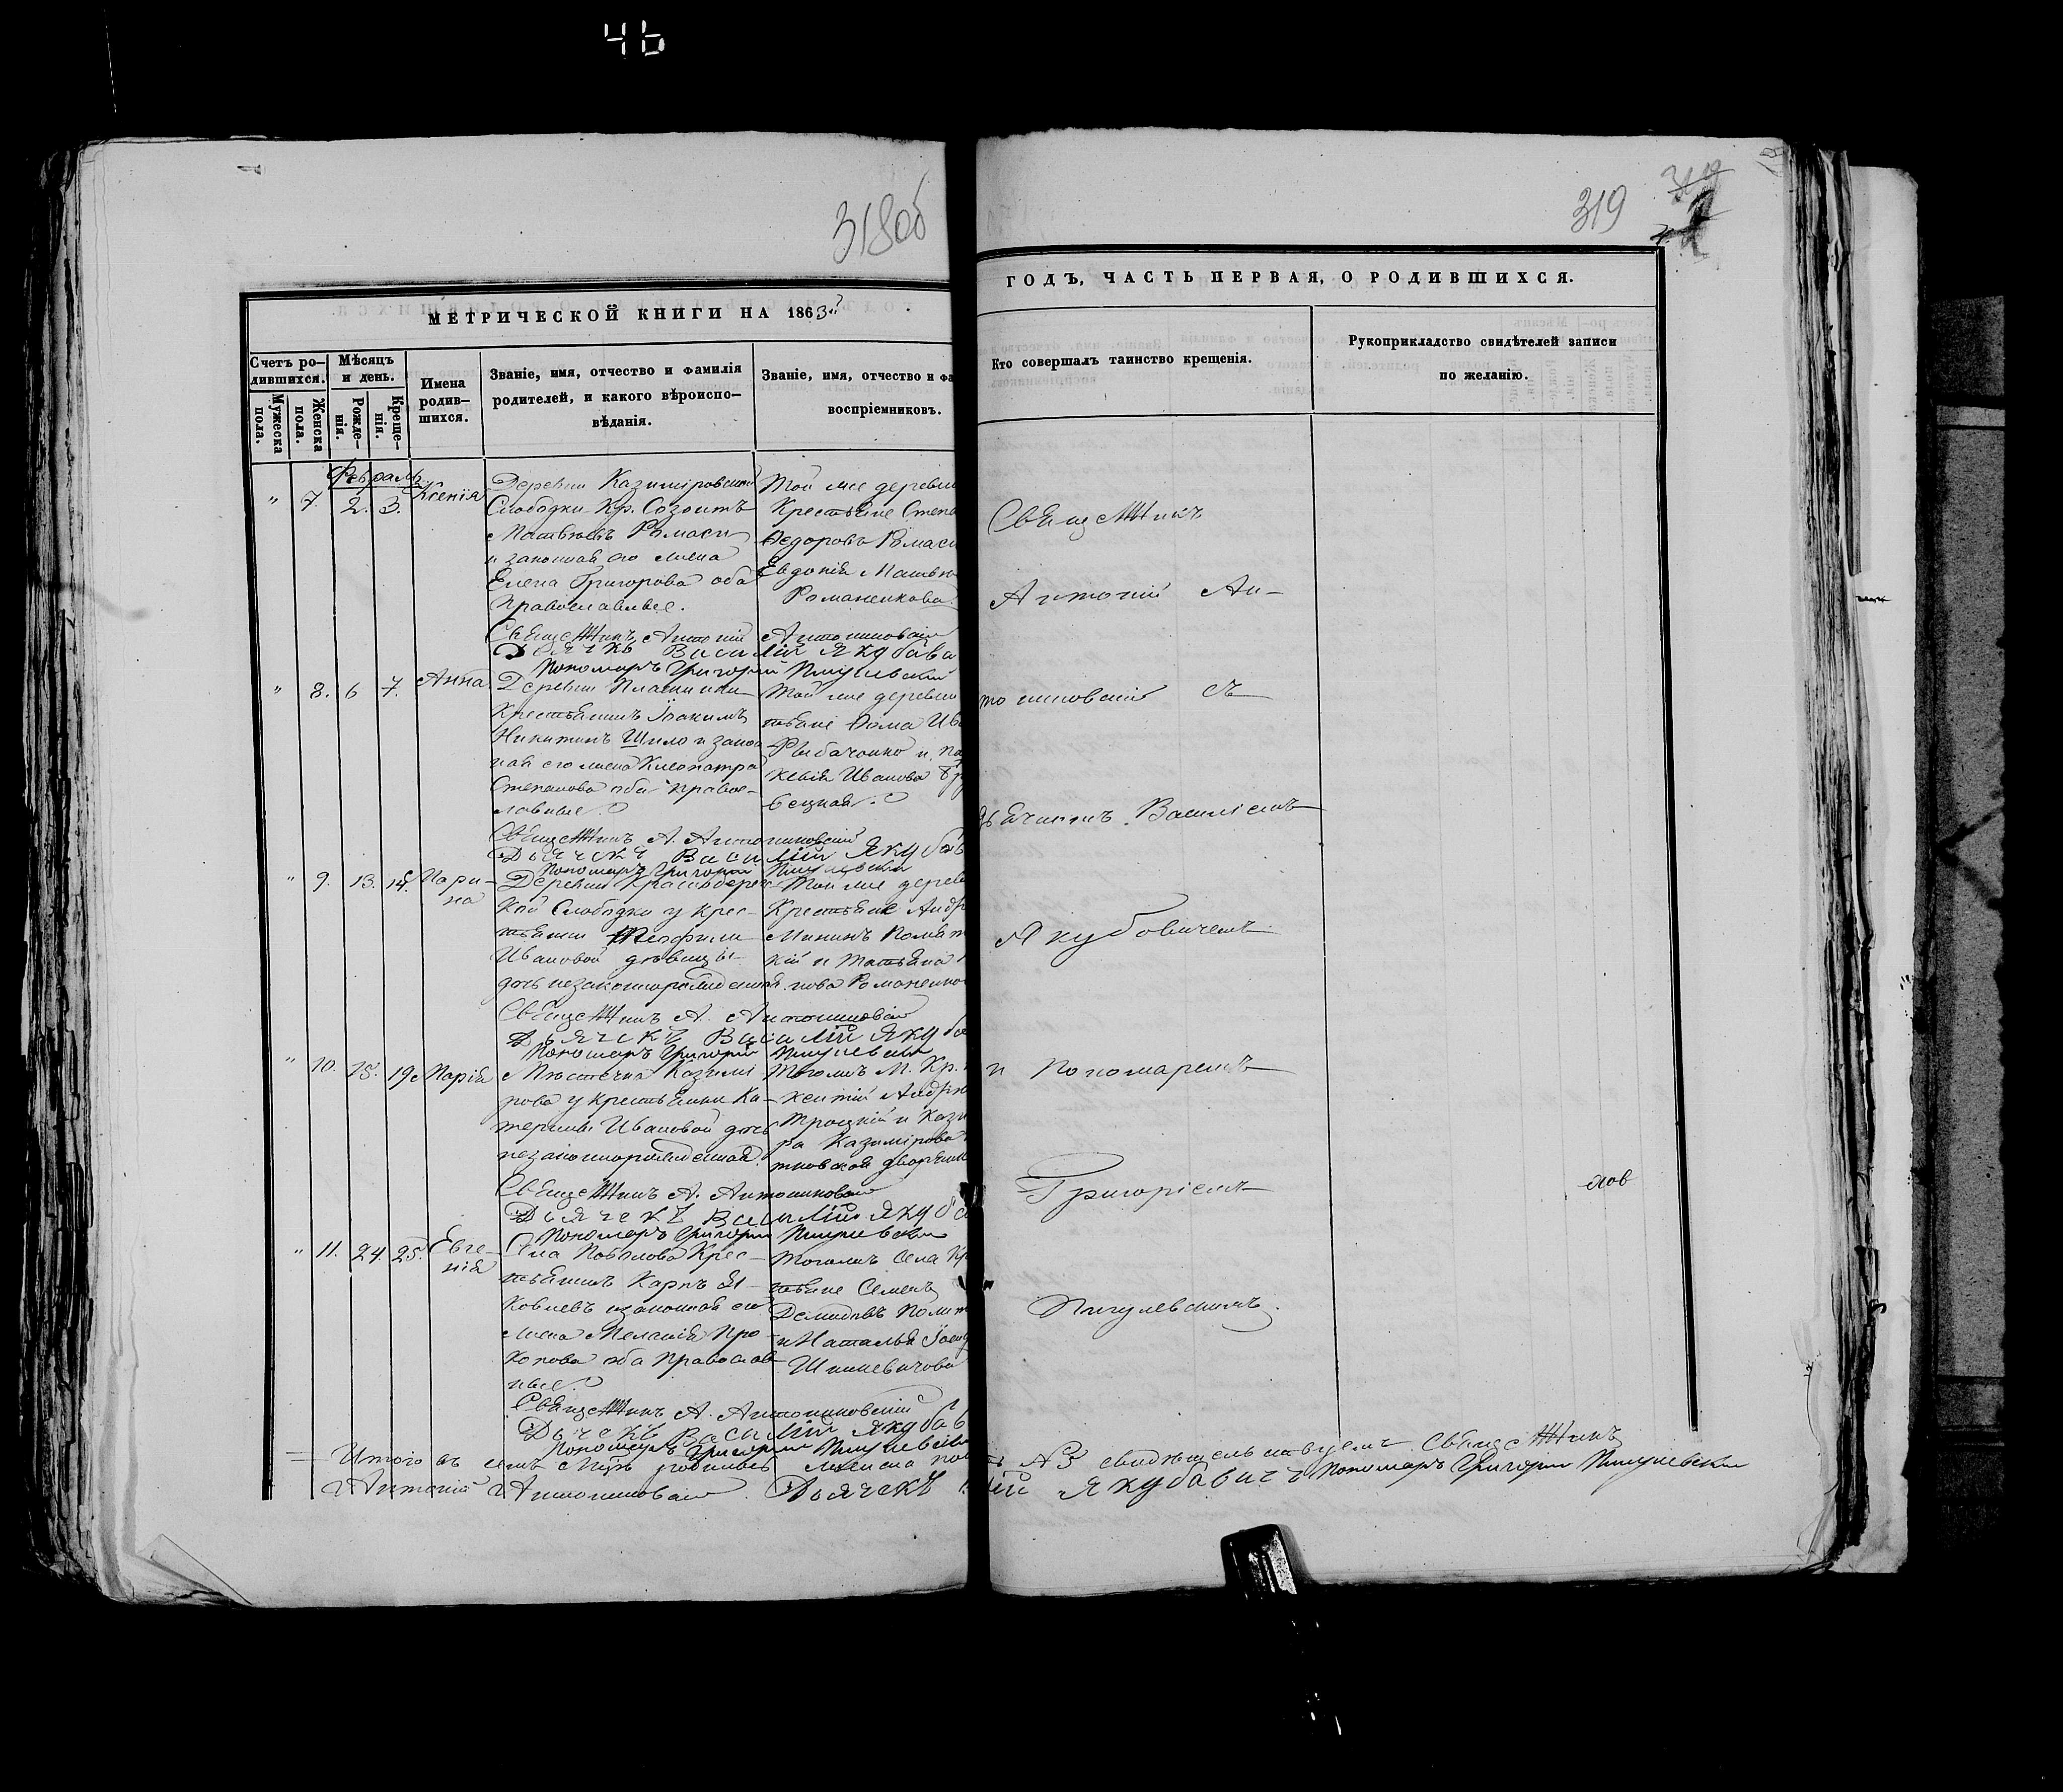 46
318об
319
319
МЕТРИЧЕСКОЙ КНИГИ НА 1863
ГОДЪ, ЧАСТЬ ПЕРВАЯ, О РОДИВШИХСЯ.
Счетъ ро-
дившихся.
Мужеска
пола.
Женска
пола.
Мѣсяцъ
и день.
Рожде-
нія.
Креще-
нія.
Имена
родив-
шихся.
Званіе, имя, отчество и фамилія
родителей, и какого вѣроиспо-
вѣданія.
Званіе, имя, отчество и фа
воспріемниковъ.
Кто совершалъ таинство крещенія.
Рукоприкладство свидѣтелей записи
по желанію.
Февраль
" 7. 2. 3. Ксенія
Деревни Казимировской
Слободки Кр. Созонтъ
Матвѣевъ Романъ
и законная его жена
Елена Григорова оба
православные.
Той же деревни
Крестьяне Степа
Ѳедоровъ Романе
Евдокія Матвѣ
Романенкова.
Священникъ Антоній Антониновскій
Дьячекъ Василій Якубави
Пономаръ Григорій Пигулевскій
" 8. 6 7. Анна
Деревни
Крестьянинъ Іоакимъ
Никитинъ Шило и закон
ная его жена Клеопатра
Степанова оба право-
славные.
Той же деревни
тьяне Ѳома Ива
Рыбаченко и
Иванова
Священникъ А. Антониновскій
Дьячекъ Василій Якубав
Пономаръ Григорій Пигулевскій
" 9. 13. 14. Мари-
на
Деревни Красноберез
кой Слободки у крес-
тьянки Теофили
Ивановой дѣвицы
дочь незаконнорожденная.
Той же дерев
Крестьяне Андр
Мининъ
кій и Татьяна
нова Романенко
Священникъ А. Антониновскій
Дьячекъ Василій Якуба
Пономаръ Григорій Пигулевскій
" 10. 18. 19. Марія
Мѣстечка Казими
рова у крестьянки Ка-
терины Ивановой дочь
незаконнорожденная.
Тогожъ М. Кр.
Троцкій и Кази
ра Казимірова
тковская дворянк
Священникъ А. Антониновскій
Дьячекъ Василій Якуба
Пономаръ Григорій Пигулевскій
" 11. 24. 25. Евге-
нія
Села Поболова Крес-
тьянинъ Карпъ Я-
ковлевъ изаконная его
жена Меланія Про-
копова оба православ-
ные.
Тогожъ села Кр
тьяне Семенъ
Демидовъ
и Наталья
Шинкевичова
Священникъ А. Антониновскій
Дьячекъ Василій Якубав
Пономаръ Григорій Пигулевскій
Священникъ
Антоній Ан-
тониновскій съ
дьячкомъ Василіемъ
Якубовичемъ
и Пономаремъ
Григоріемъ
Пигулевскимъ.
Итого въ семъ Мцѣ родившихъ женска пола № 5 свидѣтельствуемъ Священникъ
Антоній Антониновскій Дьячекъ Якубавичъ Пономаръ Григорій Пигулевскій